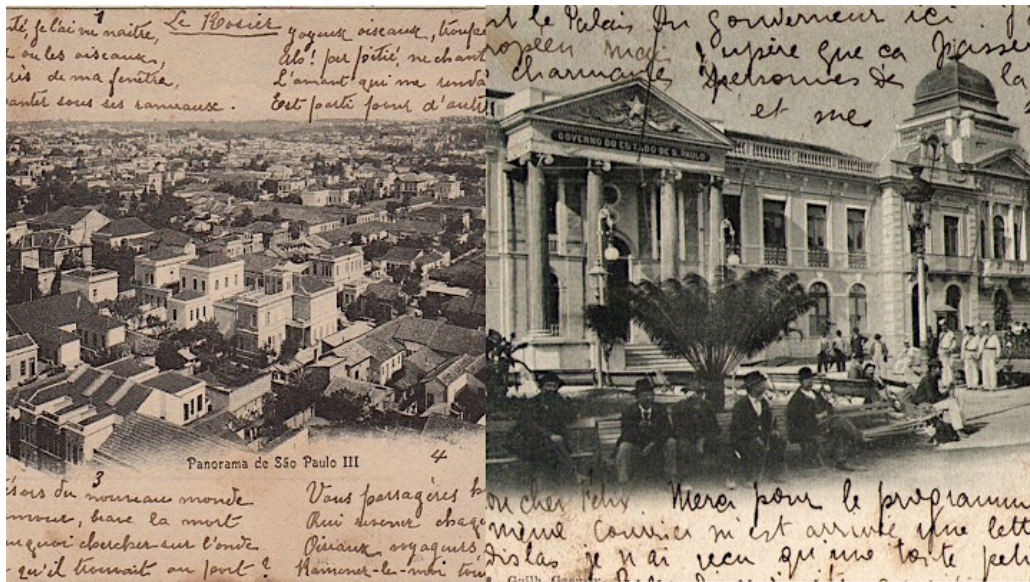 1
Le Rosier
té, je l'ai vu naître,
ou les oiseaux,
ris de ma fenêtre,
anter sous ses rameaux.
joyeux oiseaux, troupe
par pitié, ne chant
L'amant qui me renda
Est parti pour d'autr
Panorama de São Paulo III
3
4
ésors du nouveau monde
amour, brave la mort
urquoi chercher sur l'onde
qu'il trouvait au port ?
Vous passagères
Qui
Oiseaux voyageurs,
Ramenez-le-moi
nt le Palais du gouverneur ici.
ropéen mais que ca passe
charmantes personnes de la
et mes
GOVERNO DO ESTADO DE S. PAULO
on cher Felix. Merci pour le programm
même courrier m'est arrivée une lett
dislas je n'ai recu qu'une
Guilh. Gaensly